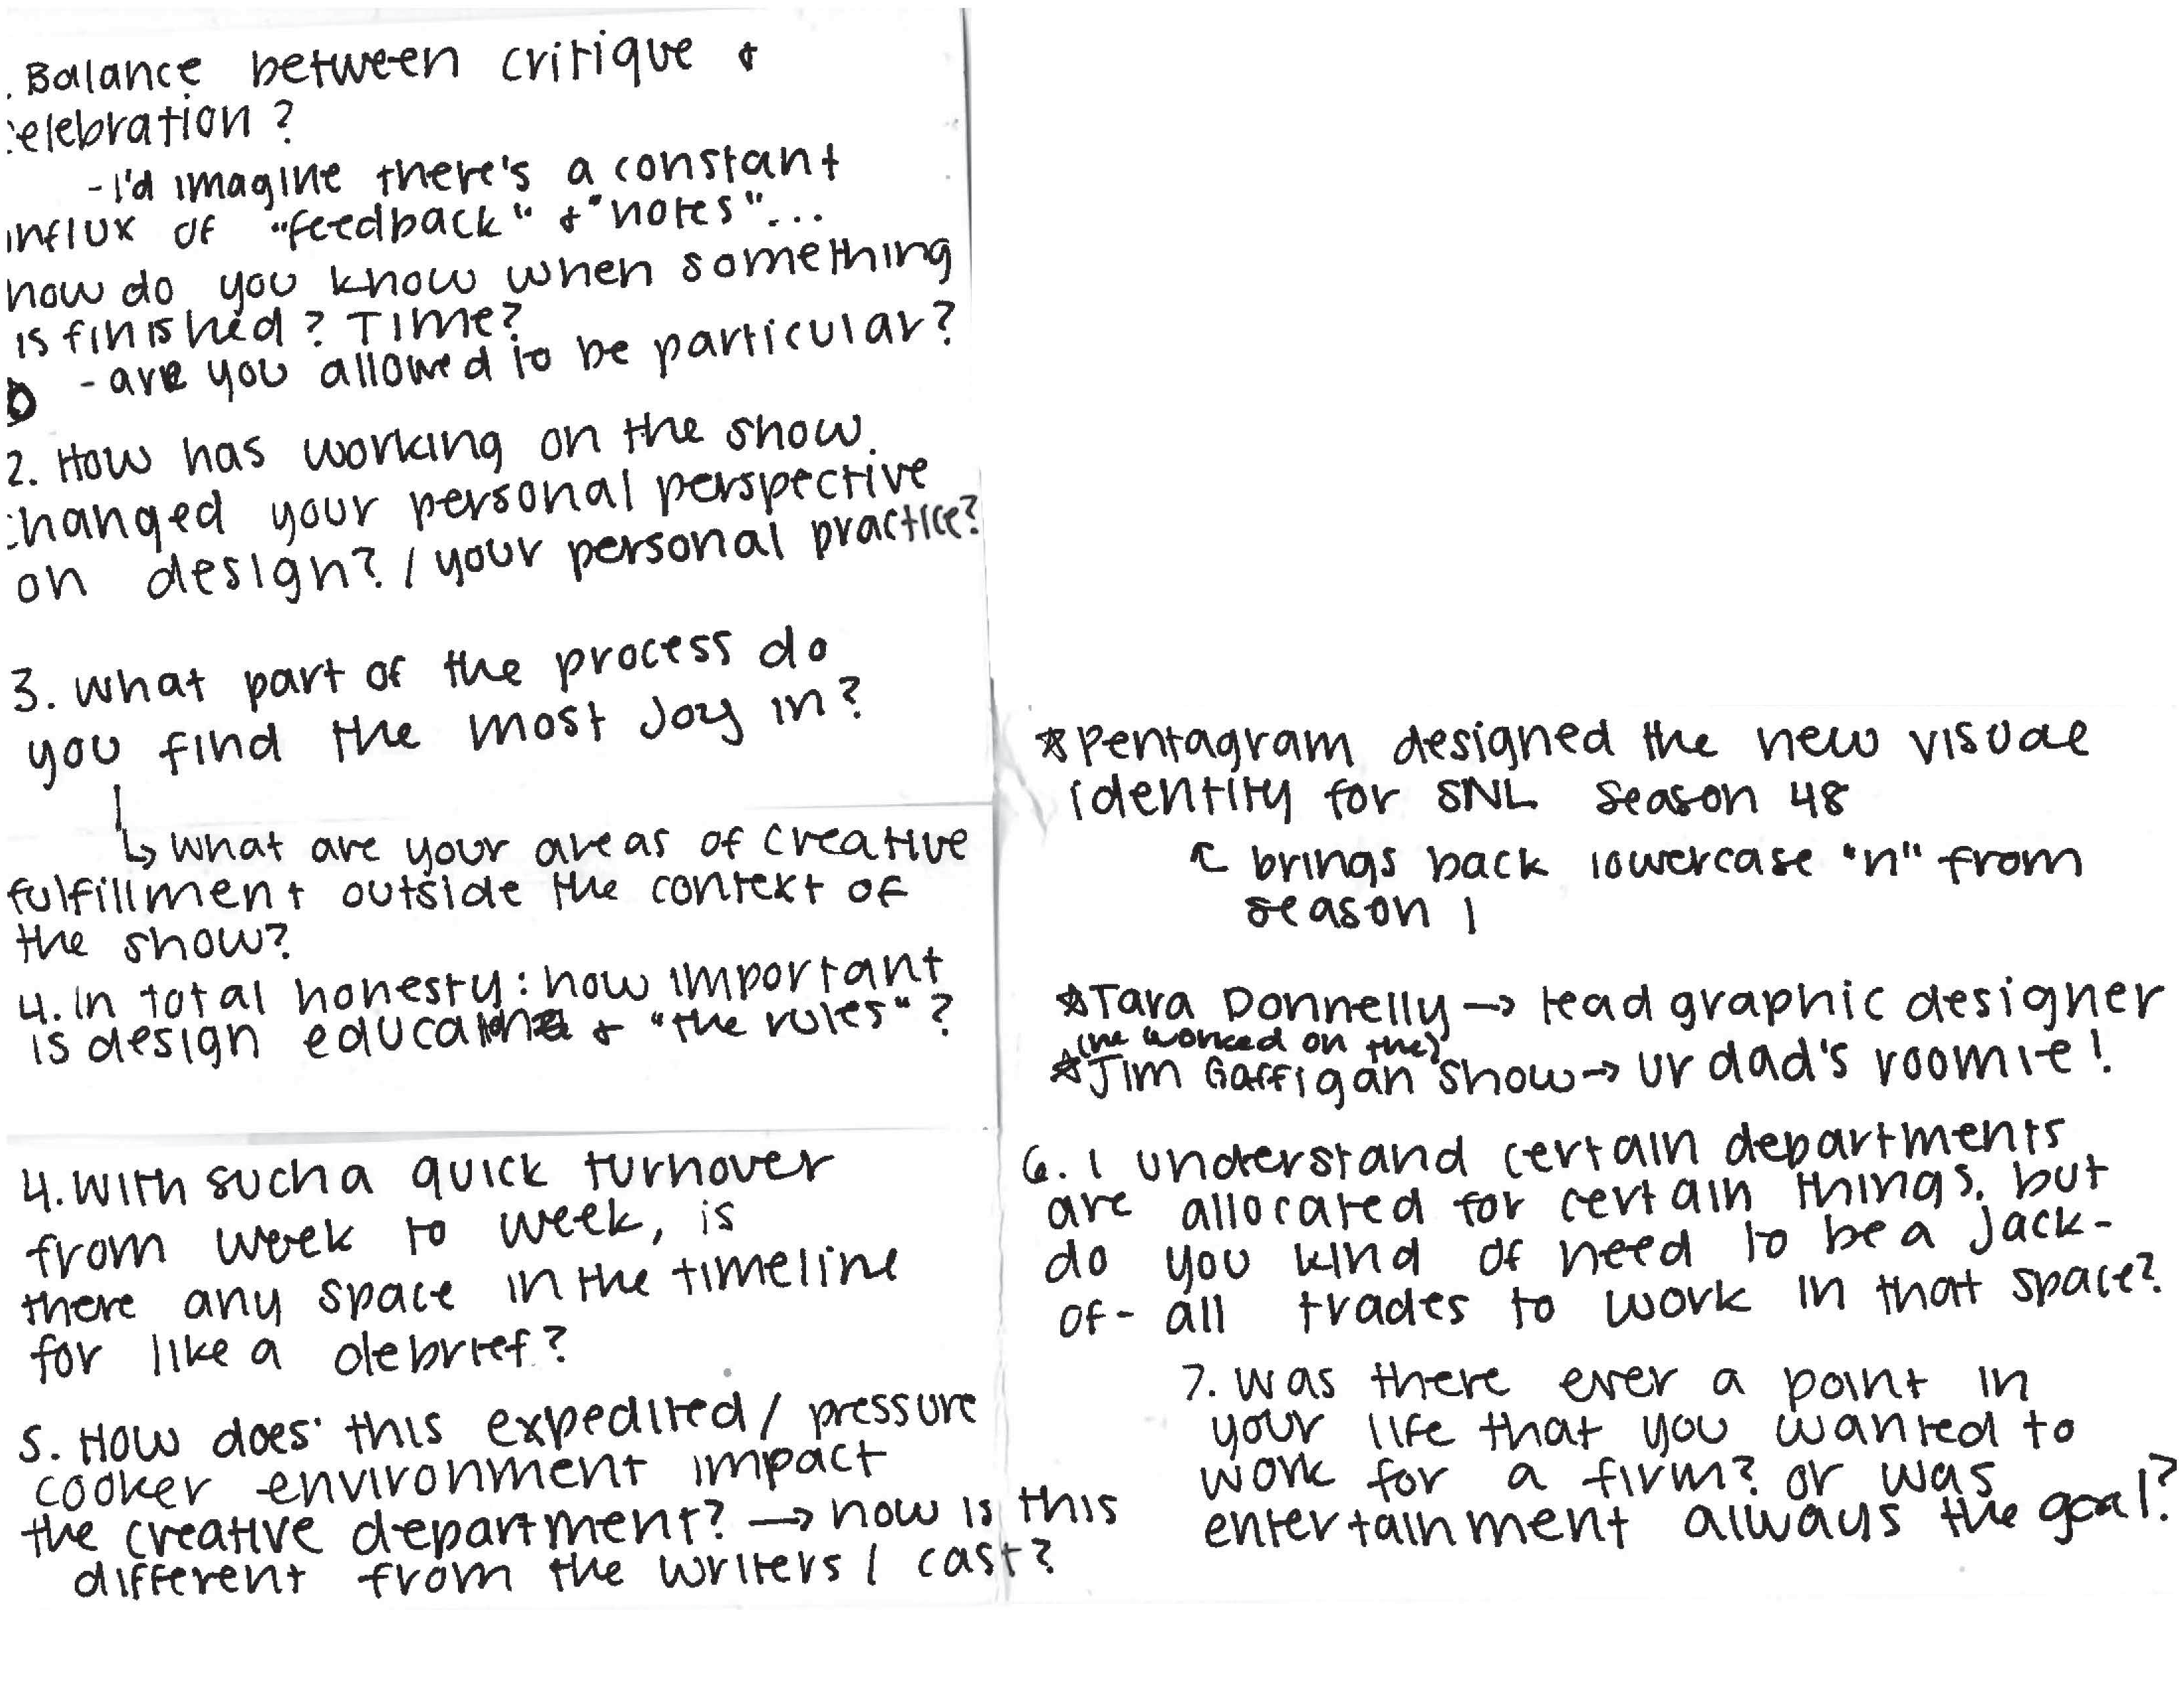 . Balance between critique &
celebration?
-I'd imagine there's a constant
influx of "feedback" & "notes"...
how do you know when something
is finished? Time?
- are you allowed to be particular?
2. How has working on the show
changed your personal perspective
on design? / your personal practice?
3. What part of the process do
you find the most joy in?
↳ what are your areas of creative
fulfillment outside the context of
the show?
4. in total honesty: how important
is design education & "the rules"?
4. With such a quick turnover
from week to week, is
there any space in the timeline
for like a debrief?
5. How does this expedited / pressure
cooker environment impact
the creative department? → how is this
different from the writers / cast?
☆ Pentagram designed the new visual
identity for SNL Season 48
↸ brings back lowercase "n" from
season 1
☆ Tara Donnelly → lead graphic designer
(he worked on the)
☆ Jim Gaffigan show → ur dad's roomie!
6. I understand certain departments
are allocated for certain things, but
do you kind of need to be a jack-
of-all trades to work in that space?
7. was there ever a point in
your life that you wanted to
work for a firm? or was
entertainment always the goal?